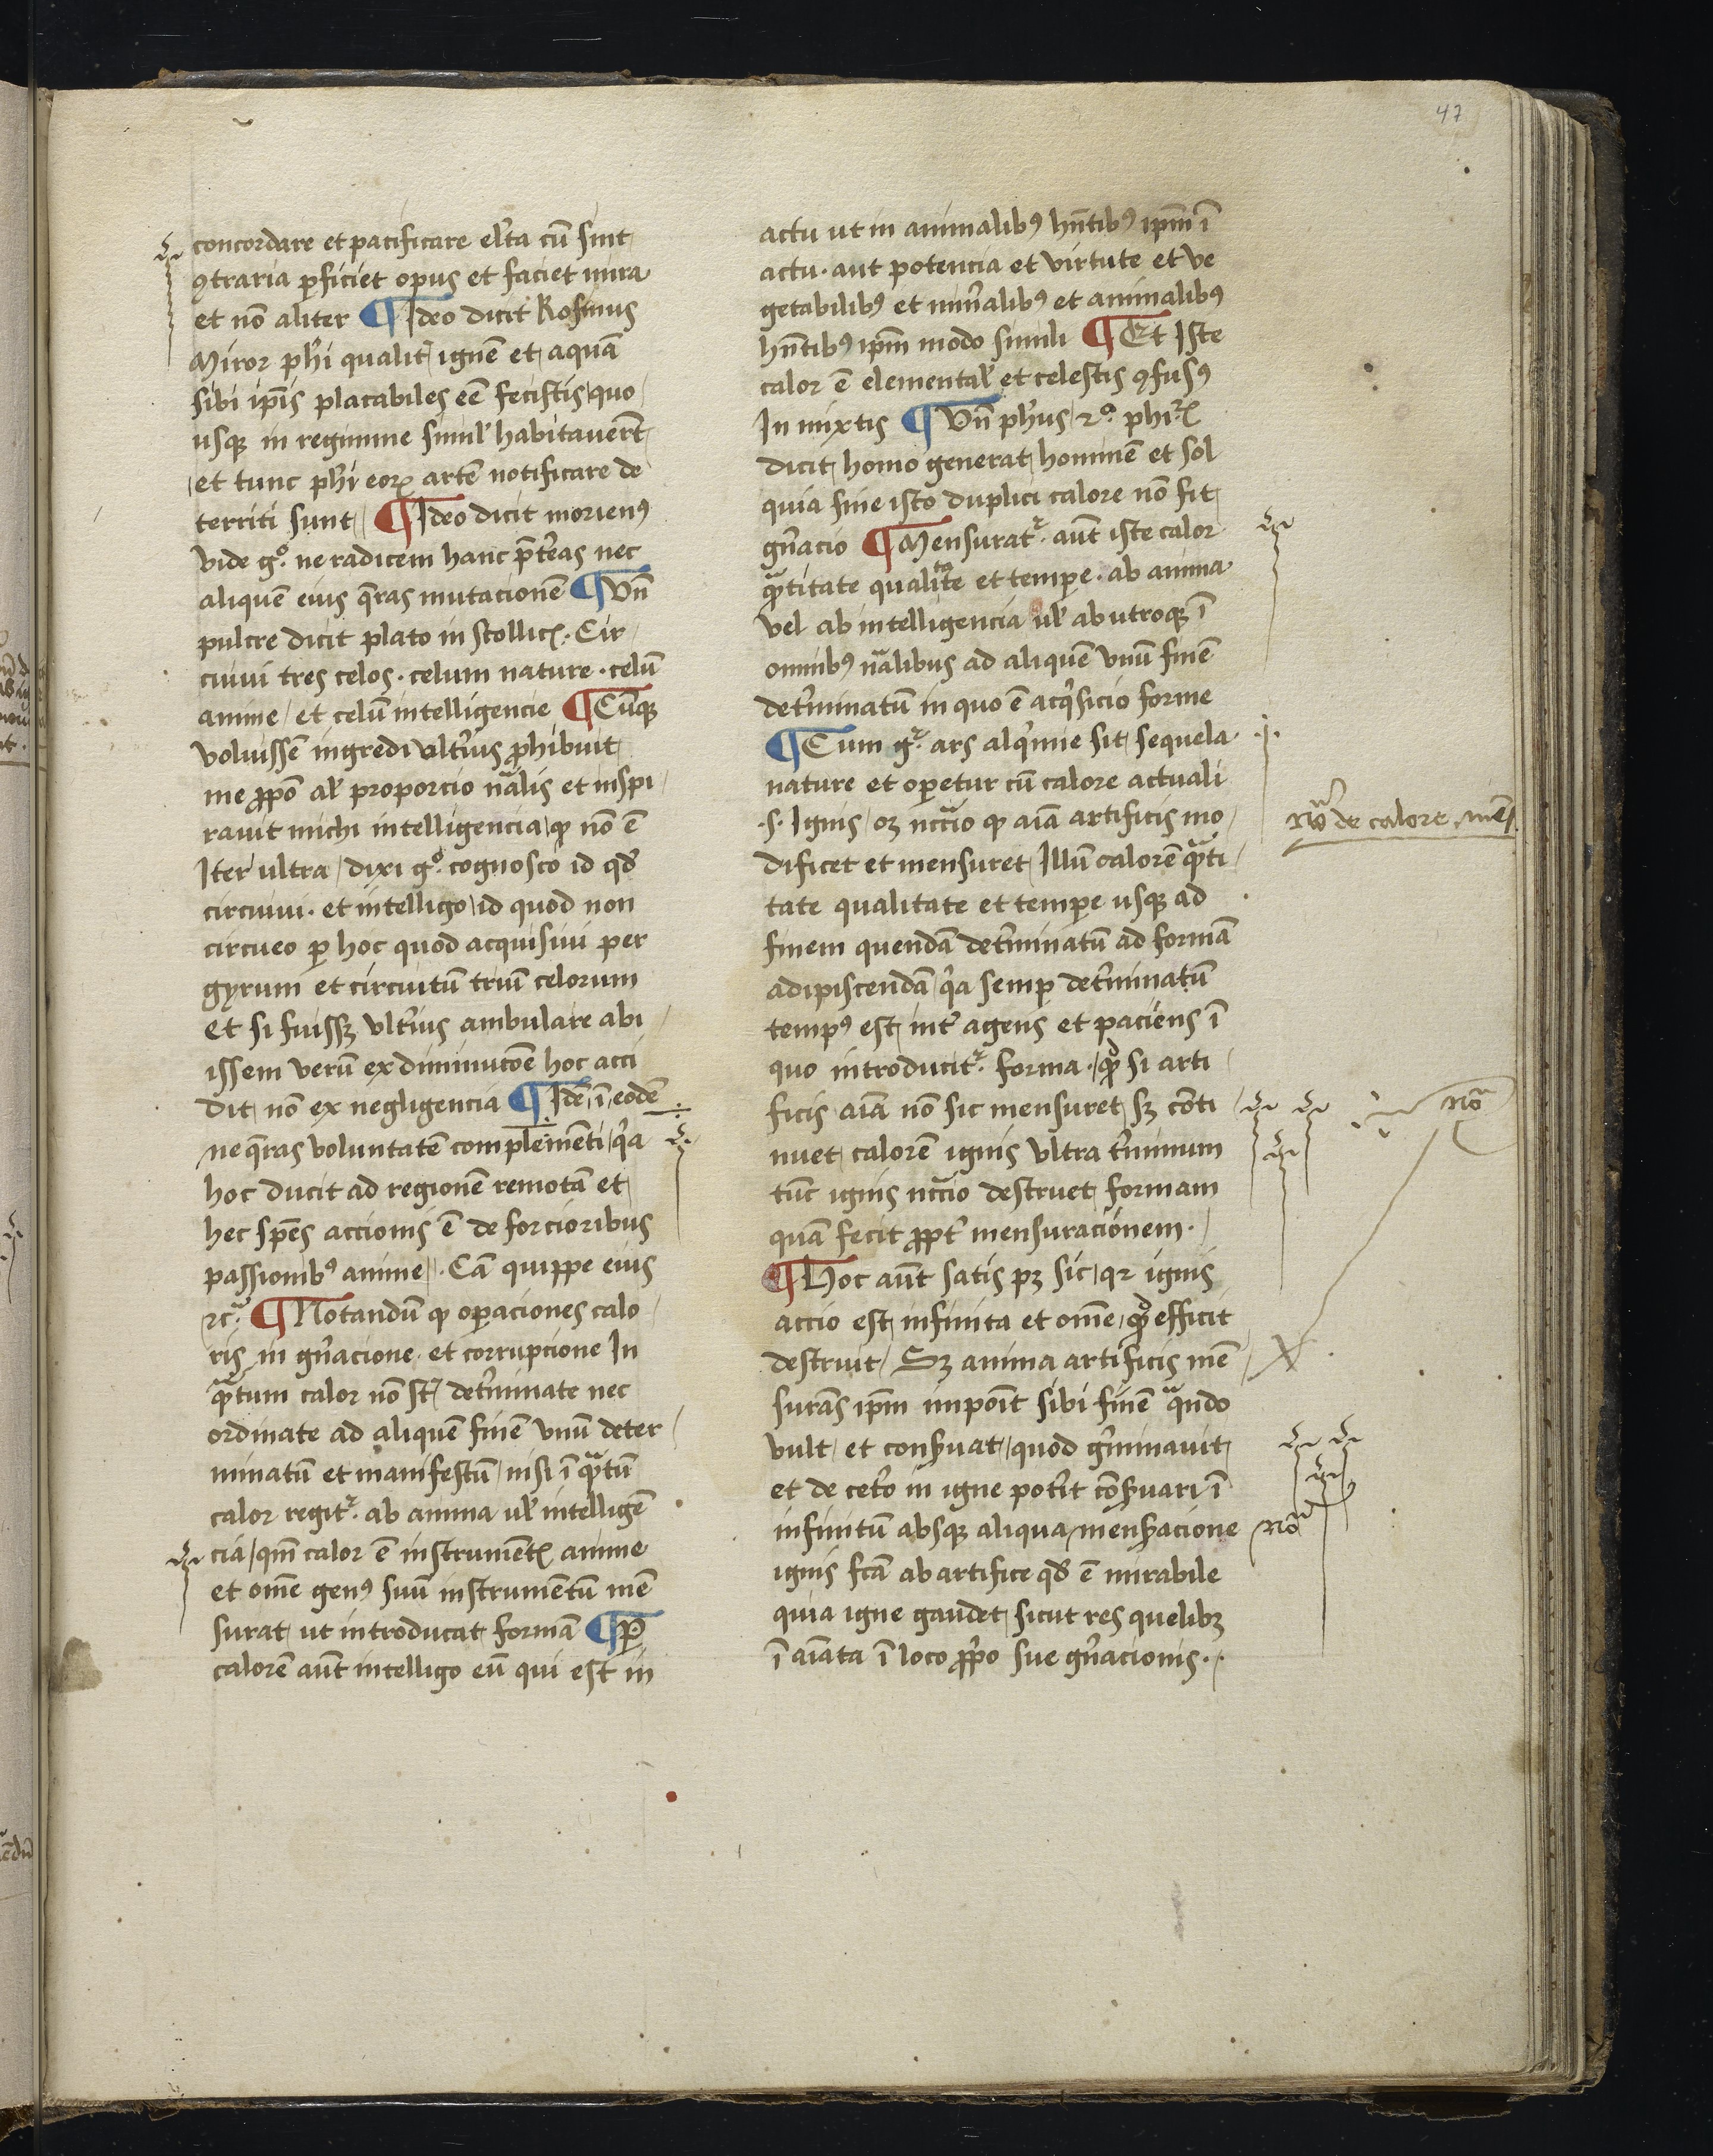 47
concordare et pacificare el'ta cū sint
ꝯtraria ꝑficiet opus et faciet mira
et nō aliter ¶ Ideo dicit Rosinus
Miror ph'i qualit' ignē et aquā
sibi ip̄is placabiles eē fecistis quo
usqꝫ in regimine simul' habitauer̄t
et tunc ph'i eoꝝ artē notificare de
territi sunt ¶ Ideo dicit morienꝰ
vide gͦ. ne radicem hanc p̄t'eas nec
aliquē eius q̄ras mutacionē ¶ Vn̄
pulcre dicit plato in stollicꝭ. Cir
cuiui tres celos. celum nature. celū
anime et celū intelligencie ¶ Cūqꝫ
voluissē ingredi ult'ius ꝓhibuit
me ꝓpō al' proporcio nāalis et inspi
rauit michi intelligencia ꝙ nō ē
Iter ultra dixi gͦ. cognosco id qd'
circuiui. et intelligo id quod non
circueo ꝑ hoc quod acquisiui per
gyrum et circuitū triū celorum
et si fuissꝫ vlt'ius ambulare abi
issem verū ex diminucōe hoc acci
dit nō ex negligencia ¶ Idē ī eodē
ne q̄ras voluntatē complemēti q'a
hoc ducit ad regionē remotā et
hec sp̄es accionis ē de forcioribus
passionibꝰ anime. Cā quippe eius
⁊cᵃ. ¶ Notandū ꝙ oꝑaciones calo
ris in gn̄acione et corrupcione In
qᵃtum calor nō st̄ det'minate nec
ordinate ad aliquē finē vnū deter
minatū et manifestū nisi ī qᵃtū
calor regit². ab anima ul' intelligē
cia qm̄ calor ē instrumētꝭ anime
et om̄e genꝰ suū instrumentū mē
surat ut introducat formā ¶ ꝑ
calorē aūt intelligo eū qui est in
actu ut in animalibꝰ hn̄tibꝰ ip̄m ī
actu. aut potencia et virtute et ve
getabilibꝰ et min'alibꝰ et animalibꝰ
hn̄tibꝰ ip̄m modo simili ¶ Et Iste
calor ē elementar' et celestis ꝯfusꝰ
In mixtis ¶ Vn̄ ph'us 2ͦ. phi²ꝝ
dicit homo generat hominē et sol
quia sine isto duplici calore nō fit
gn̄acio ¶ Mensurat². aūt iste calor
qᵃtitate qualitate et tempe. ab anima
vel ab intelligencia ul' ab utroqꝫ ī
omnibꝰ nālibus ad aliquē vnū finē
det'minatū in quo ē acq'sicio forme
¶ Cum g². ars alq'mie sit sequela
nature et opetur cū calore actuali
.s. Ignis oꝫ nccᵃio ꝙ aīa artificis mo
dificet et mensuret Illū calorē qᵃti
tate qualitate et tempe usqꝫ ad
finem quendā det'minatū ad formā
adipiscendā q'a semꝑ det'minatū
tempꝰ est int' agens et paciens ī
quo introducit². forma. qᵈ si arti
ficis aīa nō sic mensuret sꝫ cōti
nuet calorē ignis ultra t'minum
tūc ignis nccᵃio destruet formam
quā fecit ꝓpt' mensuracionem.
¶ Hoc aūt satis pꝫ sic qꝛ ignis
accio est infinita et om̄e qᵈ efficit
destruit Sꝫ anima artificis mē
surās ip̄m imponit sibi finē qᵃndo
vult et conẜuat quod g'minauit
et de cet'o in igne pot'it cōẜuari ī
infinitū absqꝫ aliqua menẜacione
ignis fcā ab artifice qd' ē mirabile
quia igne gaudet sicut res quelibꝫ
ī aīata ī loco ꝓp'o sue gn̄acionis.
Noᵃ de calore mēs.
nōᵃ
Nōᵃ